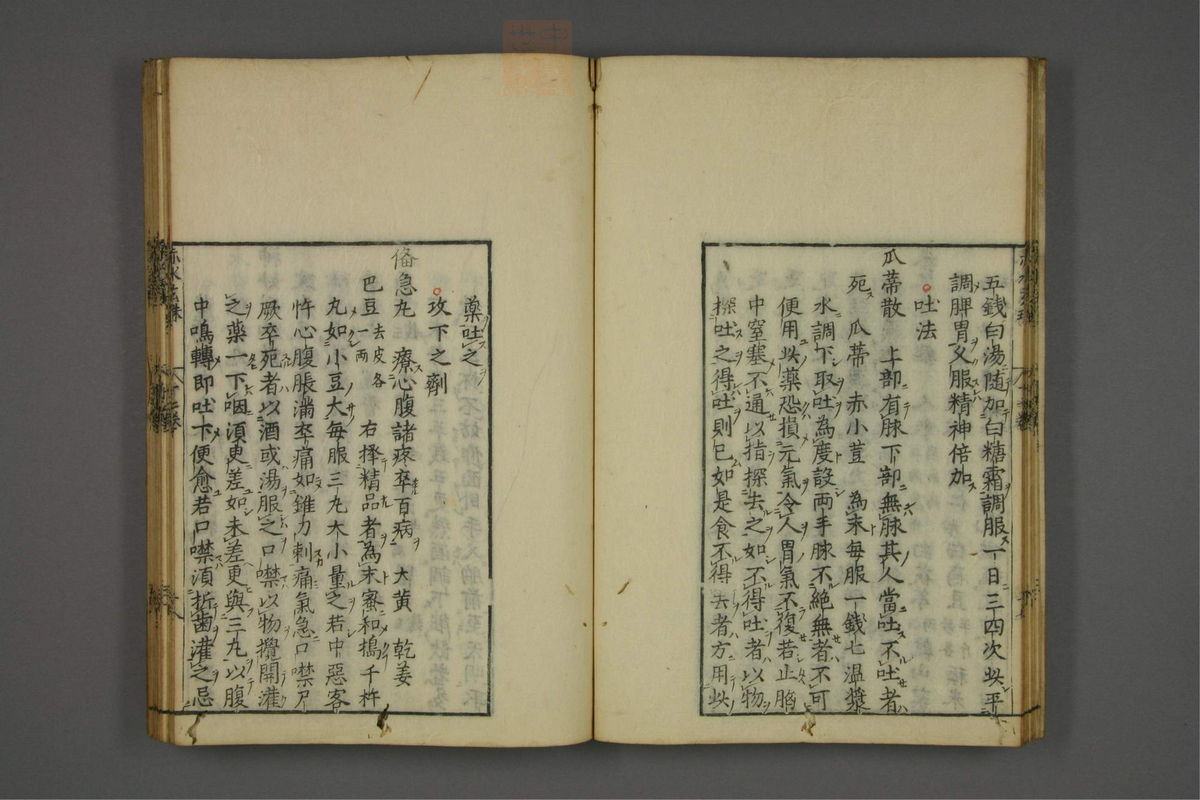 五錢白湯随加白糖霜調服一日三四次此平
調脾胃又服精神倍加
吐法
瓜蒂散 上部有脉下部無脉其人當吐不吐者
死 瓜蒂 赤小荳 為末每服一錢七温漿
水調下取吐為度設両手脉不絶無者不可
便用此薬恐損元氣令人胃氣不復若止胸
中窒塞不通以指探去之如不得吐者以物
探吐之得吐則已如是食不得去者方用此
藥吐之
攻下之劑
俻急丸 療心腹諸疼卒百病 大黄 乾姜
巴豆一両去皮各 右擇精品者為末蜜和搗千杵
丸如小豆大每服三丸大小量之若中惡客
忤心腹脹滿卒痛如錐刀刺痛氣急口噤尸
厥卒死者以酒或湯服之口噤以物攪開灌
之薬一下咽須更差如未差更與三丸以腹
中鳴轉即吐下便愈若口噤須折歯灌之忌